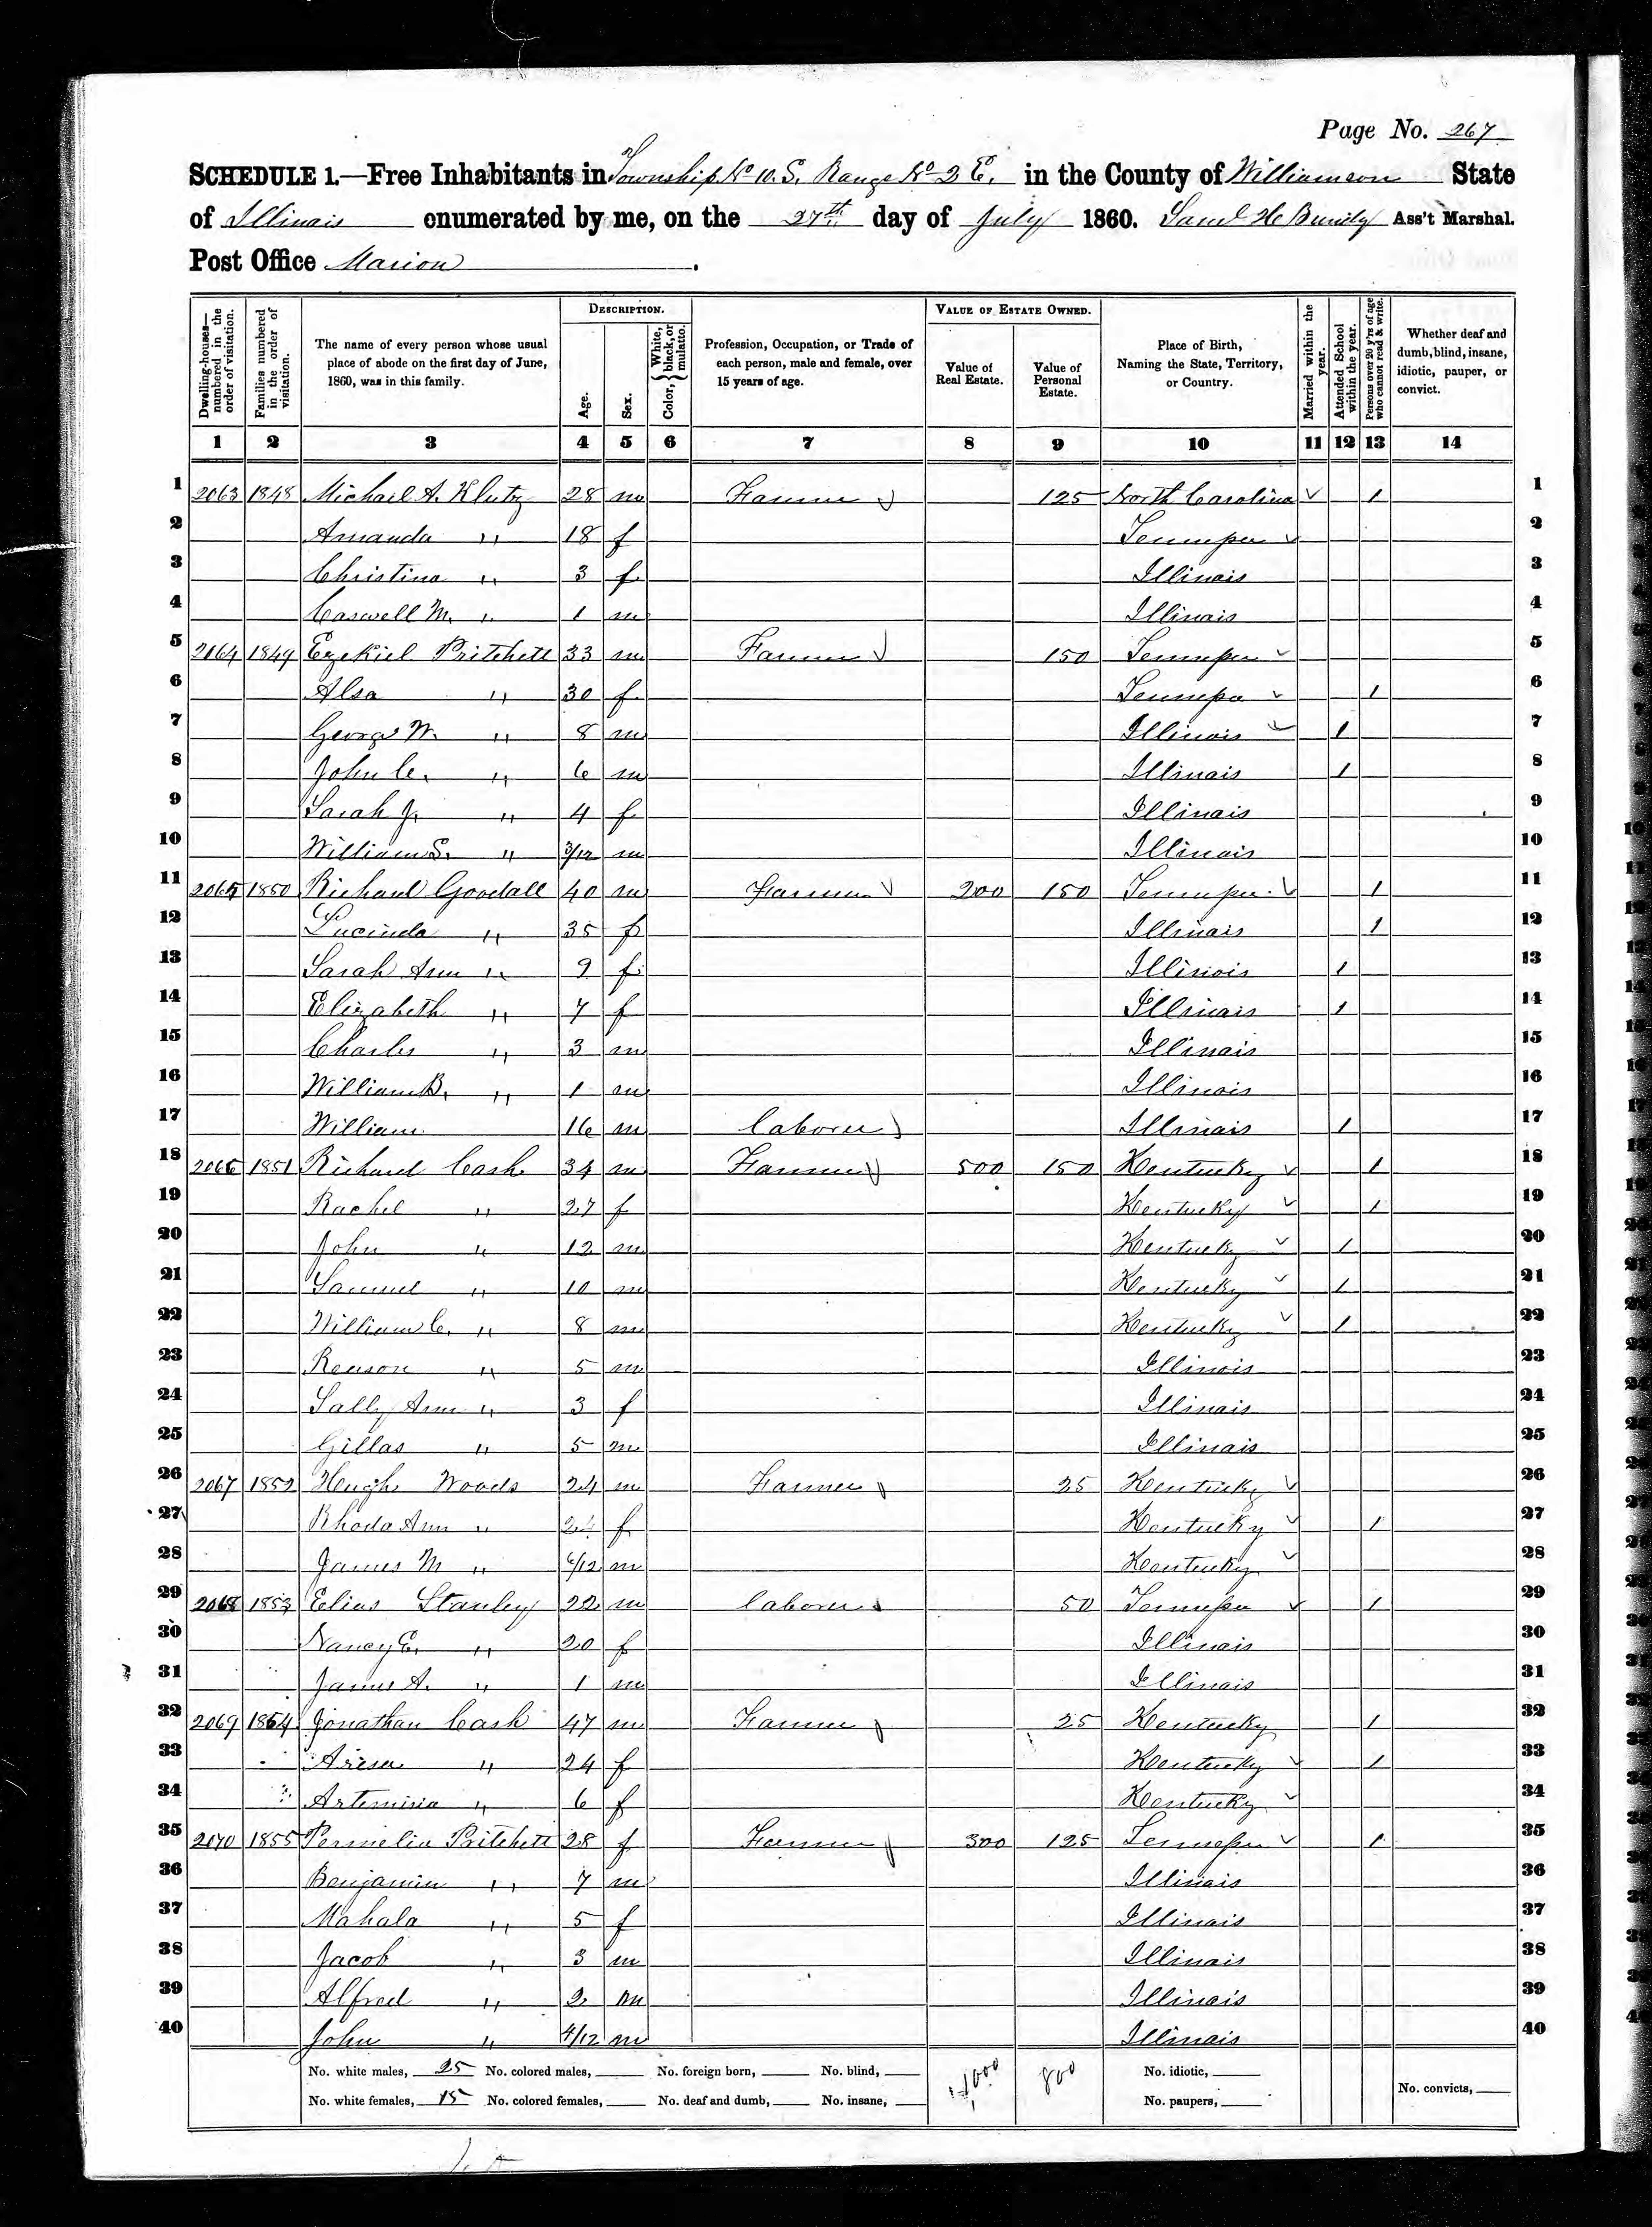 Page No. 267
SCHEDULE 1.—Free Inhabitants in Township No 10. S. Range No 2 E. in the County of Williamson State
of Illinois enumerated by me, on the 27th day of July 1860. Saml H Bundy Ass't Marshal.
Post Office Marion.
Dwelling-houses—numbered in the order of visitation.
Families numbered in the order of visitation.
The name of every person whose usual place of abode on the first day of June, 1860, was in this family.
DESCRIPTION.
Age.
Sex.
Color, { White, black, or mulatto.
Profession, Occupation, or Trade of each person, male and female, over 15 years of age.
VALUE OF ESTATE OWNED.
Value of Real Estate.
Value of Personal Estate.
Place of Birth, Naming the State, Territory, or Country.
Married within the year.
Attended School within the year.
Persons over 20 y'rs of age who cannot read & write.
Whether deaf and dumb, blind, insane, idiotic, pauper, or convict.
1 2 3 4 5 6 7 8 9 10 11 12 13 14
1 2063 1848 Michael A. Klutz 28 m Farmer 125 North Carolina 1 1
2 Amanda " 18 f Tennessee 2
3 Christina " 3 f Illinois 3
4 Caswell M. " 1 m Illinois 4
5 2064 1849 Ezekiel Pritchett 33 m Farmer 150 Tennessee 5
6 Alsa " 30 f Tennessee 1 6
7 George W. " 8 m Illinois 1 7
8 John C. " 6 m Illinois 1 8
9 Sarah J. " 4 f Illinois 9
10 William S. " 3/12 m Illinois 10
11 2065 1850 Richard Goodall 40 m Farmer 200 150 Tennessee 1 11
12 Lucinda " 35 f Illinois 1 12
13 Sarah Ann " 9 f Illinois 1 13
14 Elizabeth " 7 f Illinois 1 14
15 Charles " 3 m Illinois 15
16 William B. " 1 m Illinois 16
17 William 16 m laborer Illinois 1 17
18 2066 1851 Richard Cash 34 m Farmer 500 150 Kentucky 1 18
19 Rachel " 27 f Kentucky 1 19
20 John " 12 m Kentucky 1 20
21 Samuel " 10 m Kentucky 1 21
22 William C. " 8 m Kentucky 1 22
23 Reason " 5 m Illinois 23
24 Sally Ann " 3 f Illinois 24
25 Gillas " 5 m Illinois 25
26 2067 1852 Hugh Woods 24 m Farmer 25 Kentucky 26
27 Rhoda Ann " 24 f Kentucky 1 27
28 James M " 6/12 m Kentucky 28
29 2068 1853 Elias Stanley 22 m laborer 50 Tennessee 1 29
30 Nancy E. " 20 f Illinois 30
31 James A. " 1 m Illinois 31
32 2069 1854 Jonathan Cash 47 m Farmer 25 Kentucky 1 32
33 " 24 f Kentucky 1 33
34 Artemisia " 6 f Kentucky 34
35 2070 1855 Permelia Pritchett 28 f Farmer 300 125 Tennessee 1 35
36 Benjamin " 7 m Illinois 36
37 Mahala " 5 f Illinois 37
38 Jacob " 3 m Illinois 38
39 Alfred " 2 m Illinois 39
40 John " 4/12 m Illinois 40
No. white males, 25 No. colored males, No. foreign born, No. blind, 1000 800 No. idiotic,
No. white females, 15 No. colored females, No. deaf and dumb, No. insane, No. paupers, No. convicts,